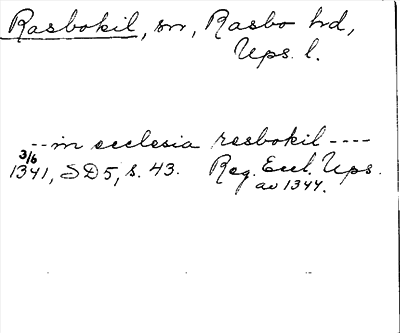 Rasbokil, sn, Rasbo hd,
Ups. l.
--in ecclesia resbokil----
3/6
1341, SD5, s. 43. Reg. Eccl. Ups.
av 1344.